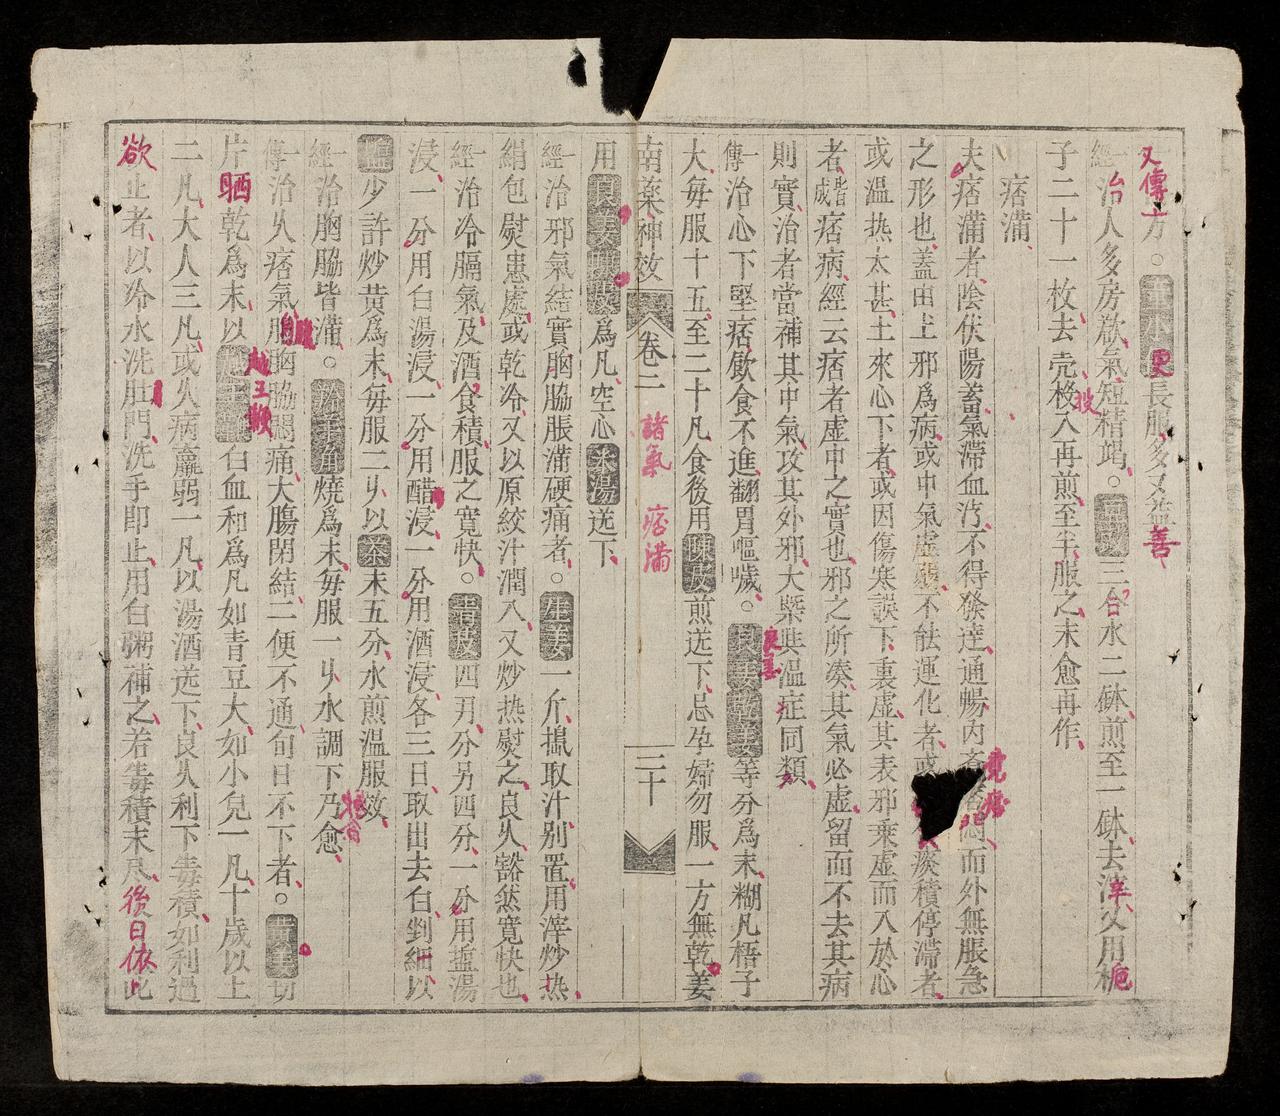 又傳方。童小便長服多又益善
一經治人多房慾氣短精竭。豆豉三合水二砵煎至一砵去滓又用梔
子二十一枚去壳投入再煎至半服之未愈再作
痞滿
夫痞滿者陰伏陽蓄氣滯血汚不得發達通暢內而外無脹急
之形也蓋由土邪爲病或中氣虛弱不能運化者或痰積停滯者
或温热太甚土來心下者或因傷寒誤下裏虛其表邪乘虛而入於心
者皆成痞病經云痞者虛中之實也邪之所凑其氣必虛留而不去其病
則實治者當補其中氣攻其外邪大槩與温症同類
一傳治心下堅痞飲食不進翻胃嘔噦。良姜乾姜等分爲末糊凡梧子
大每服十五至二十凡食後用陳皮煎送下忌孕婦勿服一方無乾姜
南藥神效 卷二 諸氣 痞滿 二十
用良姜陳皮爲凡空心米湯送下
一經治邪氣結實胸脇脹滿硬痛者。生姜一斤搗取汁别置用滓炒热
絹包熨患處或乾冷又以原絞汁潤入又炒热熨之良久豁然寬快也
一經治冷膈氣及酒食積服之寬快。青皮四刄分另四分一分用塩湯
浸一分用白湯浸一分用醋浸一分用酒浸各三日取出去白剉細以
塩少許炒黄爲末每服二刄以茶末五分水煎温服效
一經治胸脇皆滿。羚羊角燒爲末每服一刄水調下乃愈
一傳治久痞氣胸胸脇悶痛大腸閉結二便不通旬日不下者。黄姜切
片晒乾爲末以白血和爲凡如青豆大如小兒一凡十歲以上
二凡大人三凡或久病羸弱一凡以湯酒送下良久利下毒積如利過
欲止者以冷水洗肛門洗手即止用白粥補之若毒積未尽後日依此